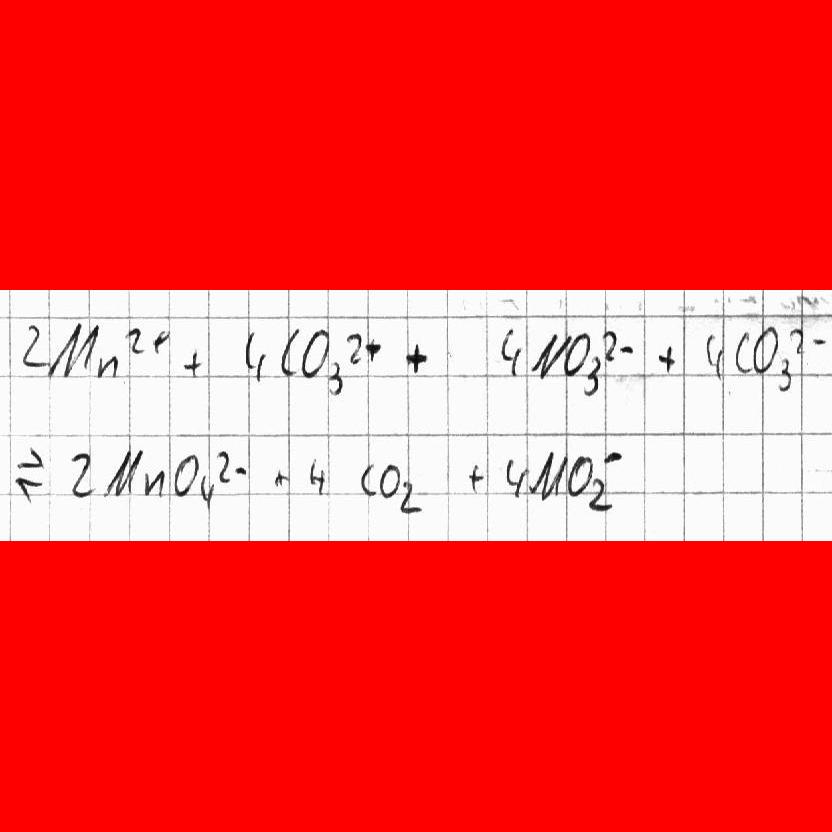 2Mn²⁺ + 4CO₃²⁺ + 4NO₃²⁻ + 4CO₃²⁻
⇌ 2MnO₄²⁻ + 4 CO₂ + 4NO₂⁻